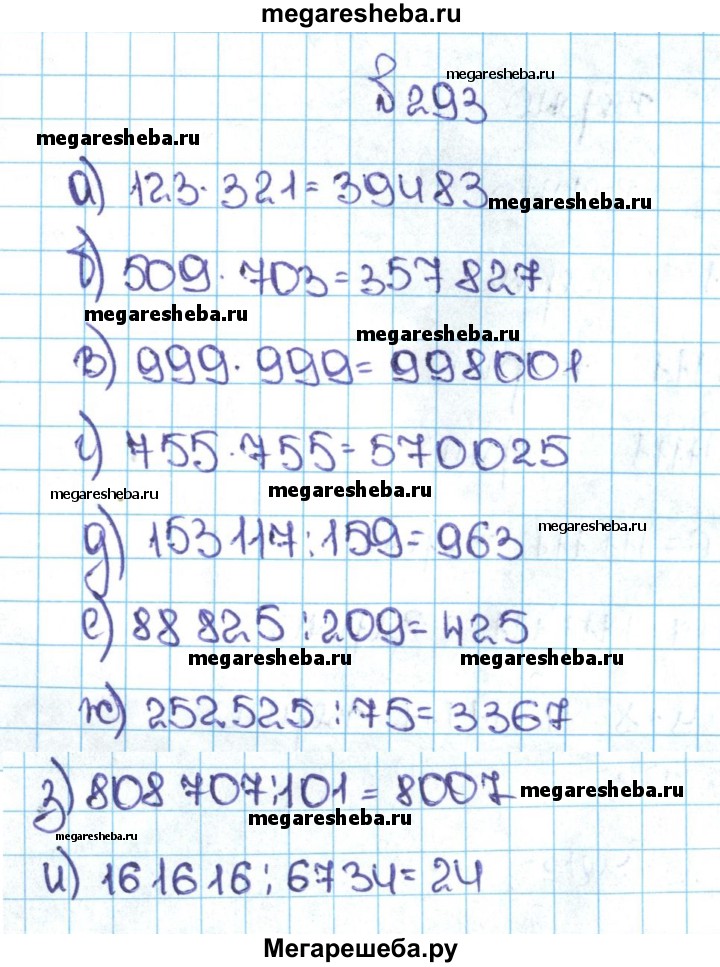 megaresheba.ru
№ 293
megaresheba.ru
megaresheba.ru
а) 123 · 321 = 39483
megaresheba.ru
б) 509 · 703 = 357 827
megaresheba.ru
megaresheba.ru
в) 999 · 999 = 998001
г) 755 · 755 = 570025
megaresheba.ru
megaresheba.ru
megaresheba.ru
д) 153 117 : 159 = 963
е) 88 825 : 209 = 425
megaresheba.ru
megaresheba.ru
ж) 252525 : 75 = 3367
з) 808 707 : 101 = 8007
megaresheba.ru
megaresheba.ru
megaresheba.ru
и) 161616 : 6734 = 24
Мегарешеба.ру